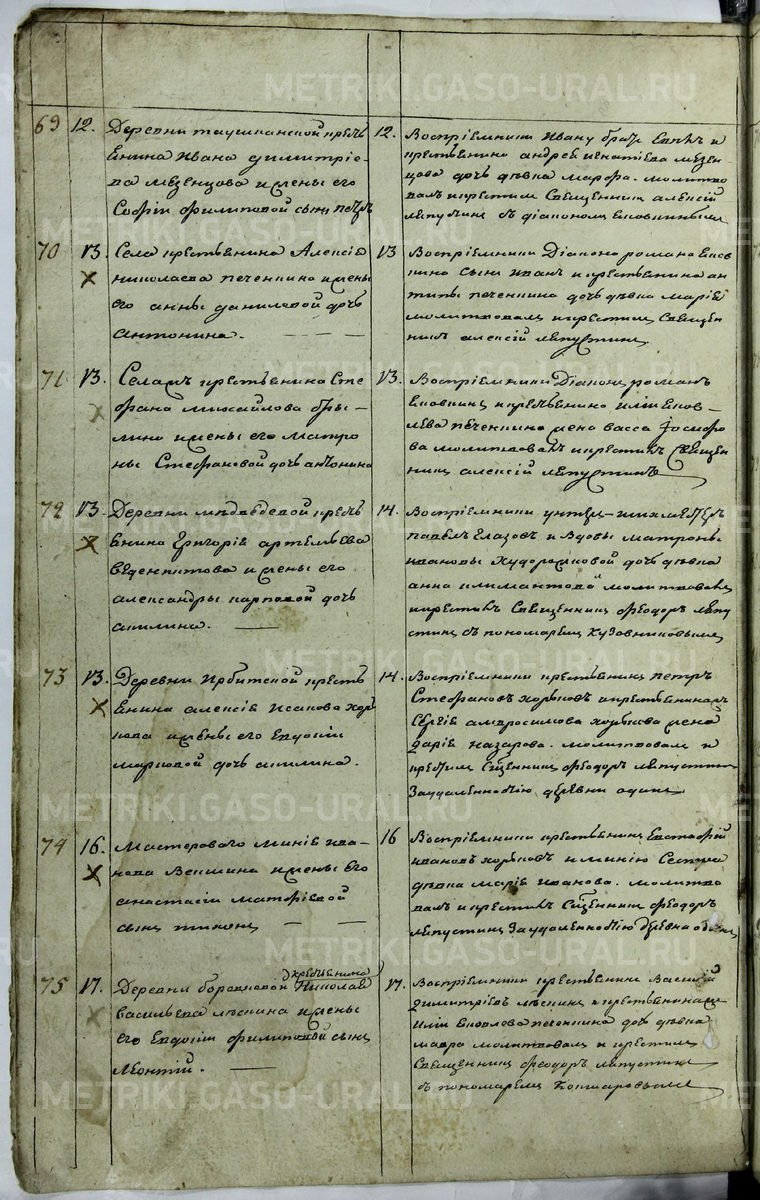 METRIKI.GASO-URAL.RU
69 12. Деревни таушканской крест
янина Ивана Димитріе
ва Мезенцова и жены его
Софіи Филиповой сынъ Петръ
12. Воспріемники Ивану братъ и
крестьянина Андрея Игнатіева Мезен
цова дочь дѣвка Марфа. молитво
валъ и крестилъ Священникъ Алексій
Ляпустинъ съ діакономъ
70 13. Села крестьянина Алексія
Николаева Печенкина и жены
его Анны Даниловой дочь
Антонина.
13 Воспріемники Діакона Романа
сынъ Иванъ и крестьянина Ан
типы Печенкина дочь дѣвка Марія
молитвовалъ и крестилъ Священ
никъ Алексій Ляпустинъ
71 13. Села крестьянина Сте
фана Михайлова
и жены его Матро
ны Стефановой дочь Антонина
13. Воспріемники Діаконъ Романъ
и крестьянина Иліи Яков
лева Печенкина жена Васса
ва молитвовалъ и крестилъ Священ
никъ Алексій Ляпустинъ
72 13. Деревни Медведевой крестъ
янина Григорія Артемьева
и жены его
Александры Карповой дочь
Акилина.
14. Воспріемники унтеръ-
Павелъ Глазовъ и вдовы Матроны
Ивановы дочь дѣвка
Анна молитвовалъ
и крестилъ Священникъ Феодоръ Ляпу
стинъ съ пономаремъ Кузовниковымъ
73 13. Деревни Ирбитской кресть
янина Алексія Исакова Хорь
кова и жены его Евдокіи
Марковой дочь Акилина.
14. Воспріемники крестьянинъ Петръ
Стефановъ Хорьковъ и крестьянина
Сергія Амвросимова Хорькова жена
Дарія Назарова. молитвовалъ и
крестилъ Священникъ Феодоръ Ляпустинъ
За удаленностію деревни одинъ
74 16. Мастероваго Минія Ива
нова Векшина и жены его
Анастасіи Матфіевой
сынъ Тихонъ
16 Воспріемники крестьянинъ Евстафій
Ивановъ Хорьковъ и Минію Сестра
дѣвка Марія Иванова. молитво
валъ и крестилъ Священникъ Феодоръ
Ляпустинъ За удаленностію деревни одинъ
крестьянина
75 17. Деревни Боровковой Николая
Васильева Лѣскина и жены
его Евдокіи Филиповой сынъ
Леонтій.
17. Воспріемники крестьянинъ Василій
Димитріевъ Лѣскинъ и крестьянина
Иліи Яковлева Печенкина дочь дѣвка
Мавра молитвовалъ и крестилъ
Священникъ Феодоръ Ляпустинъ
съ пономаремъ